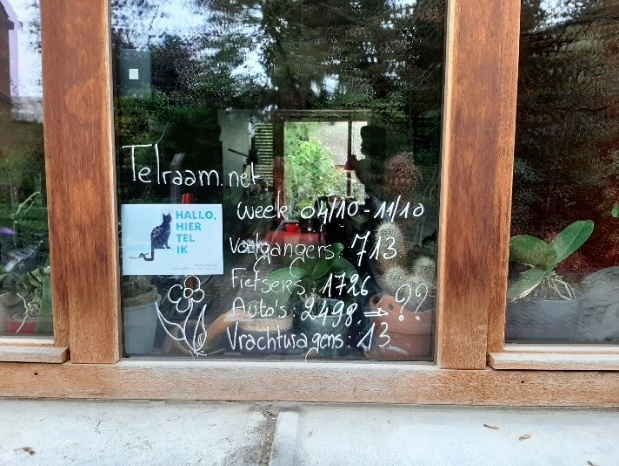 Telraam.net
HALLO,
HIER
TEL
IK
Week 04/10-11/10
Voetgangers: 713
Fietsers: 1726
Auto's: 2498 → ??
Vrachtwagens: 13